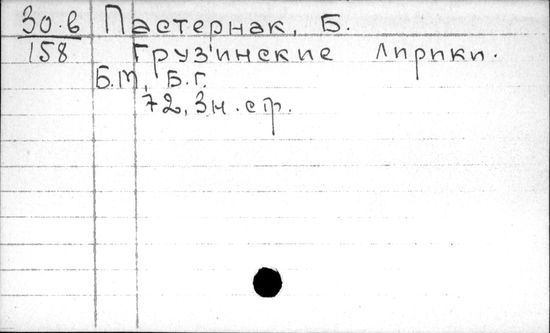 30.в Пастернак, Б.
158 Грузинские лирики.
Б.М, Б.Г.
72, 3н.стр.